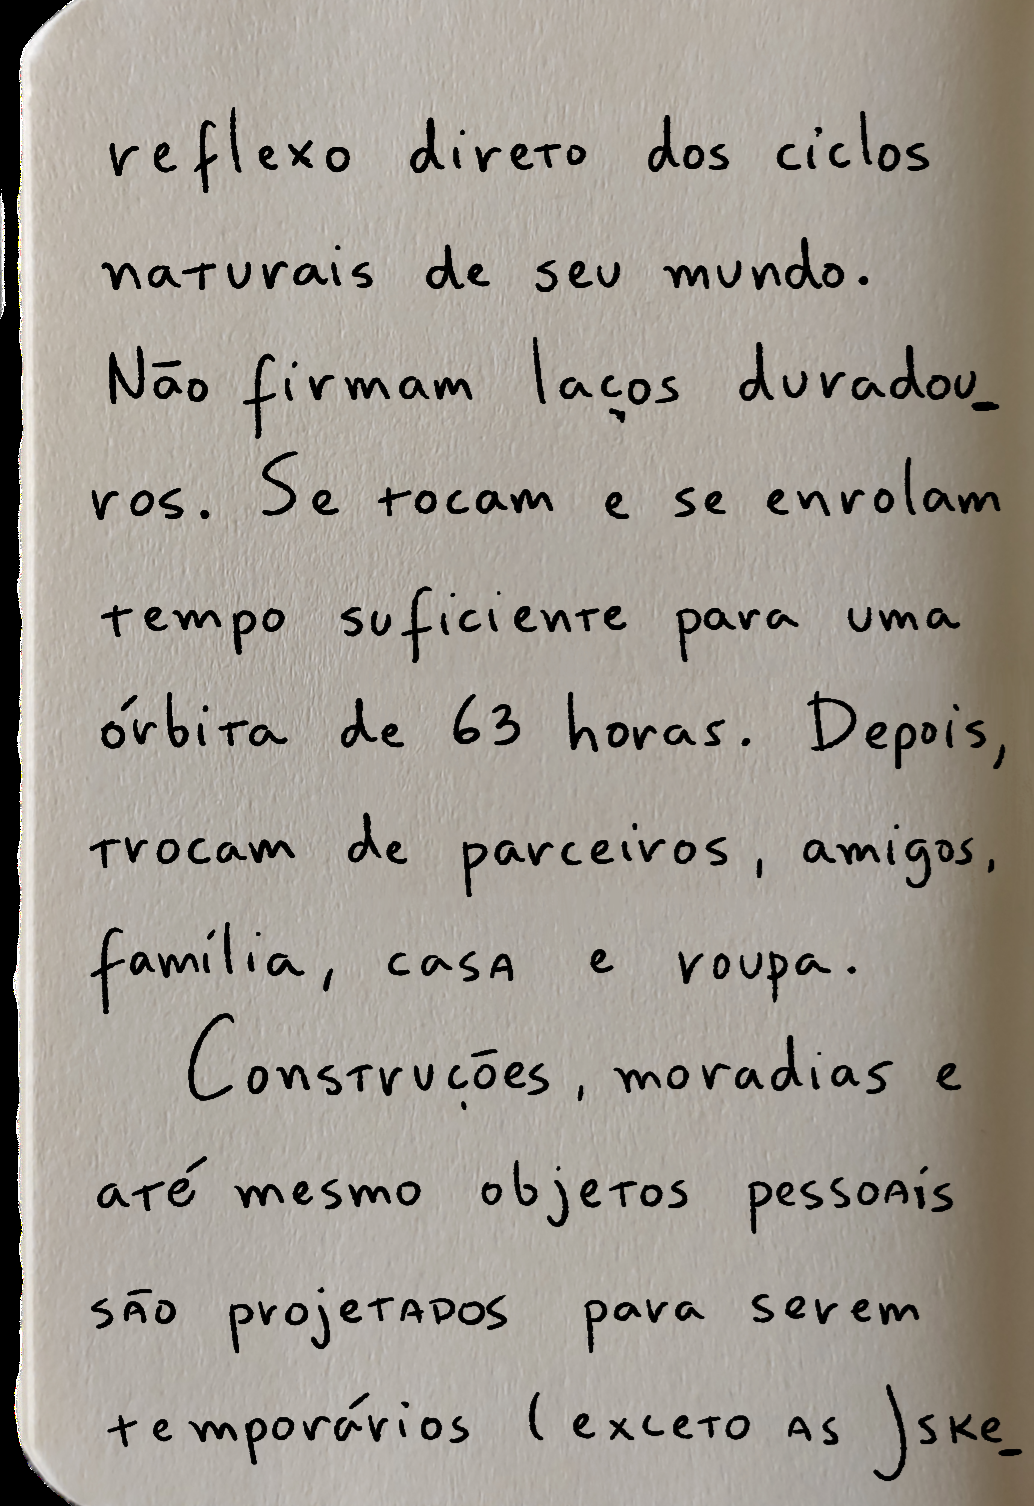 reflexo direto dos ciclos
naturais de seu mundo.
Não firmam laços duradou_
ros. Se tocam e se enrolam
tempo suficiente para uma
órbita de 63 horas. Depois,
trocam de parceiros, amigos,
família, casa e roupa.
Construções, moradias e
até mesmo objetos pessoais
são projetados para serem
temporários (exceto as Jske_